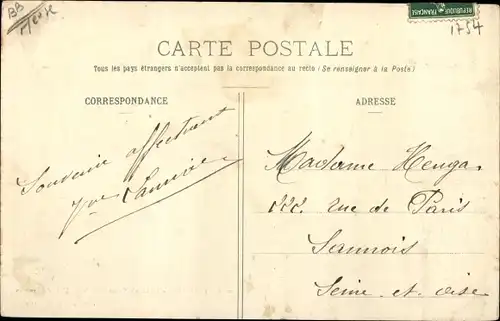 BB
RÉPUBLIQUE FRANÇAISE
1754
CARTE POSTALE
Tous les pays étrangers n'acceptent pas la correspondance au recto (Se renseigner à la Poste)
CORRESPONDANCE
ADRESSE
Souvenir affectueux
Madame
rue de Paris
Sannois
Seine et Oise